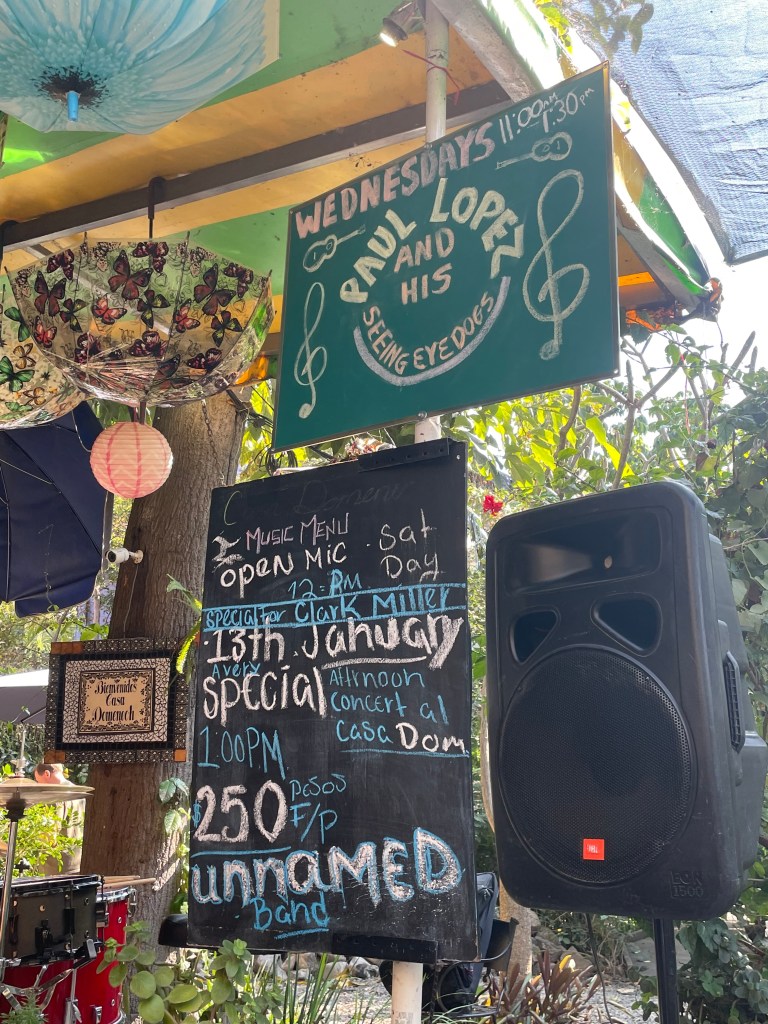 WEDNESDAYS 11:00AM
1:30PM
PAUL LOPEZ
AND
HIS
SEEING EYE DOGS
MUSIC MENU
OPEN MIC . Sat
Day
12. PM
special for Clark Miller
. 13th January
A very
special
Aftrnoon
concert al
casa Dom
1:00PM
$250 pesos
F/p
unnAMED
Band
Bienvenidos
Casa
Domenech
JBL
EON
1500